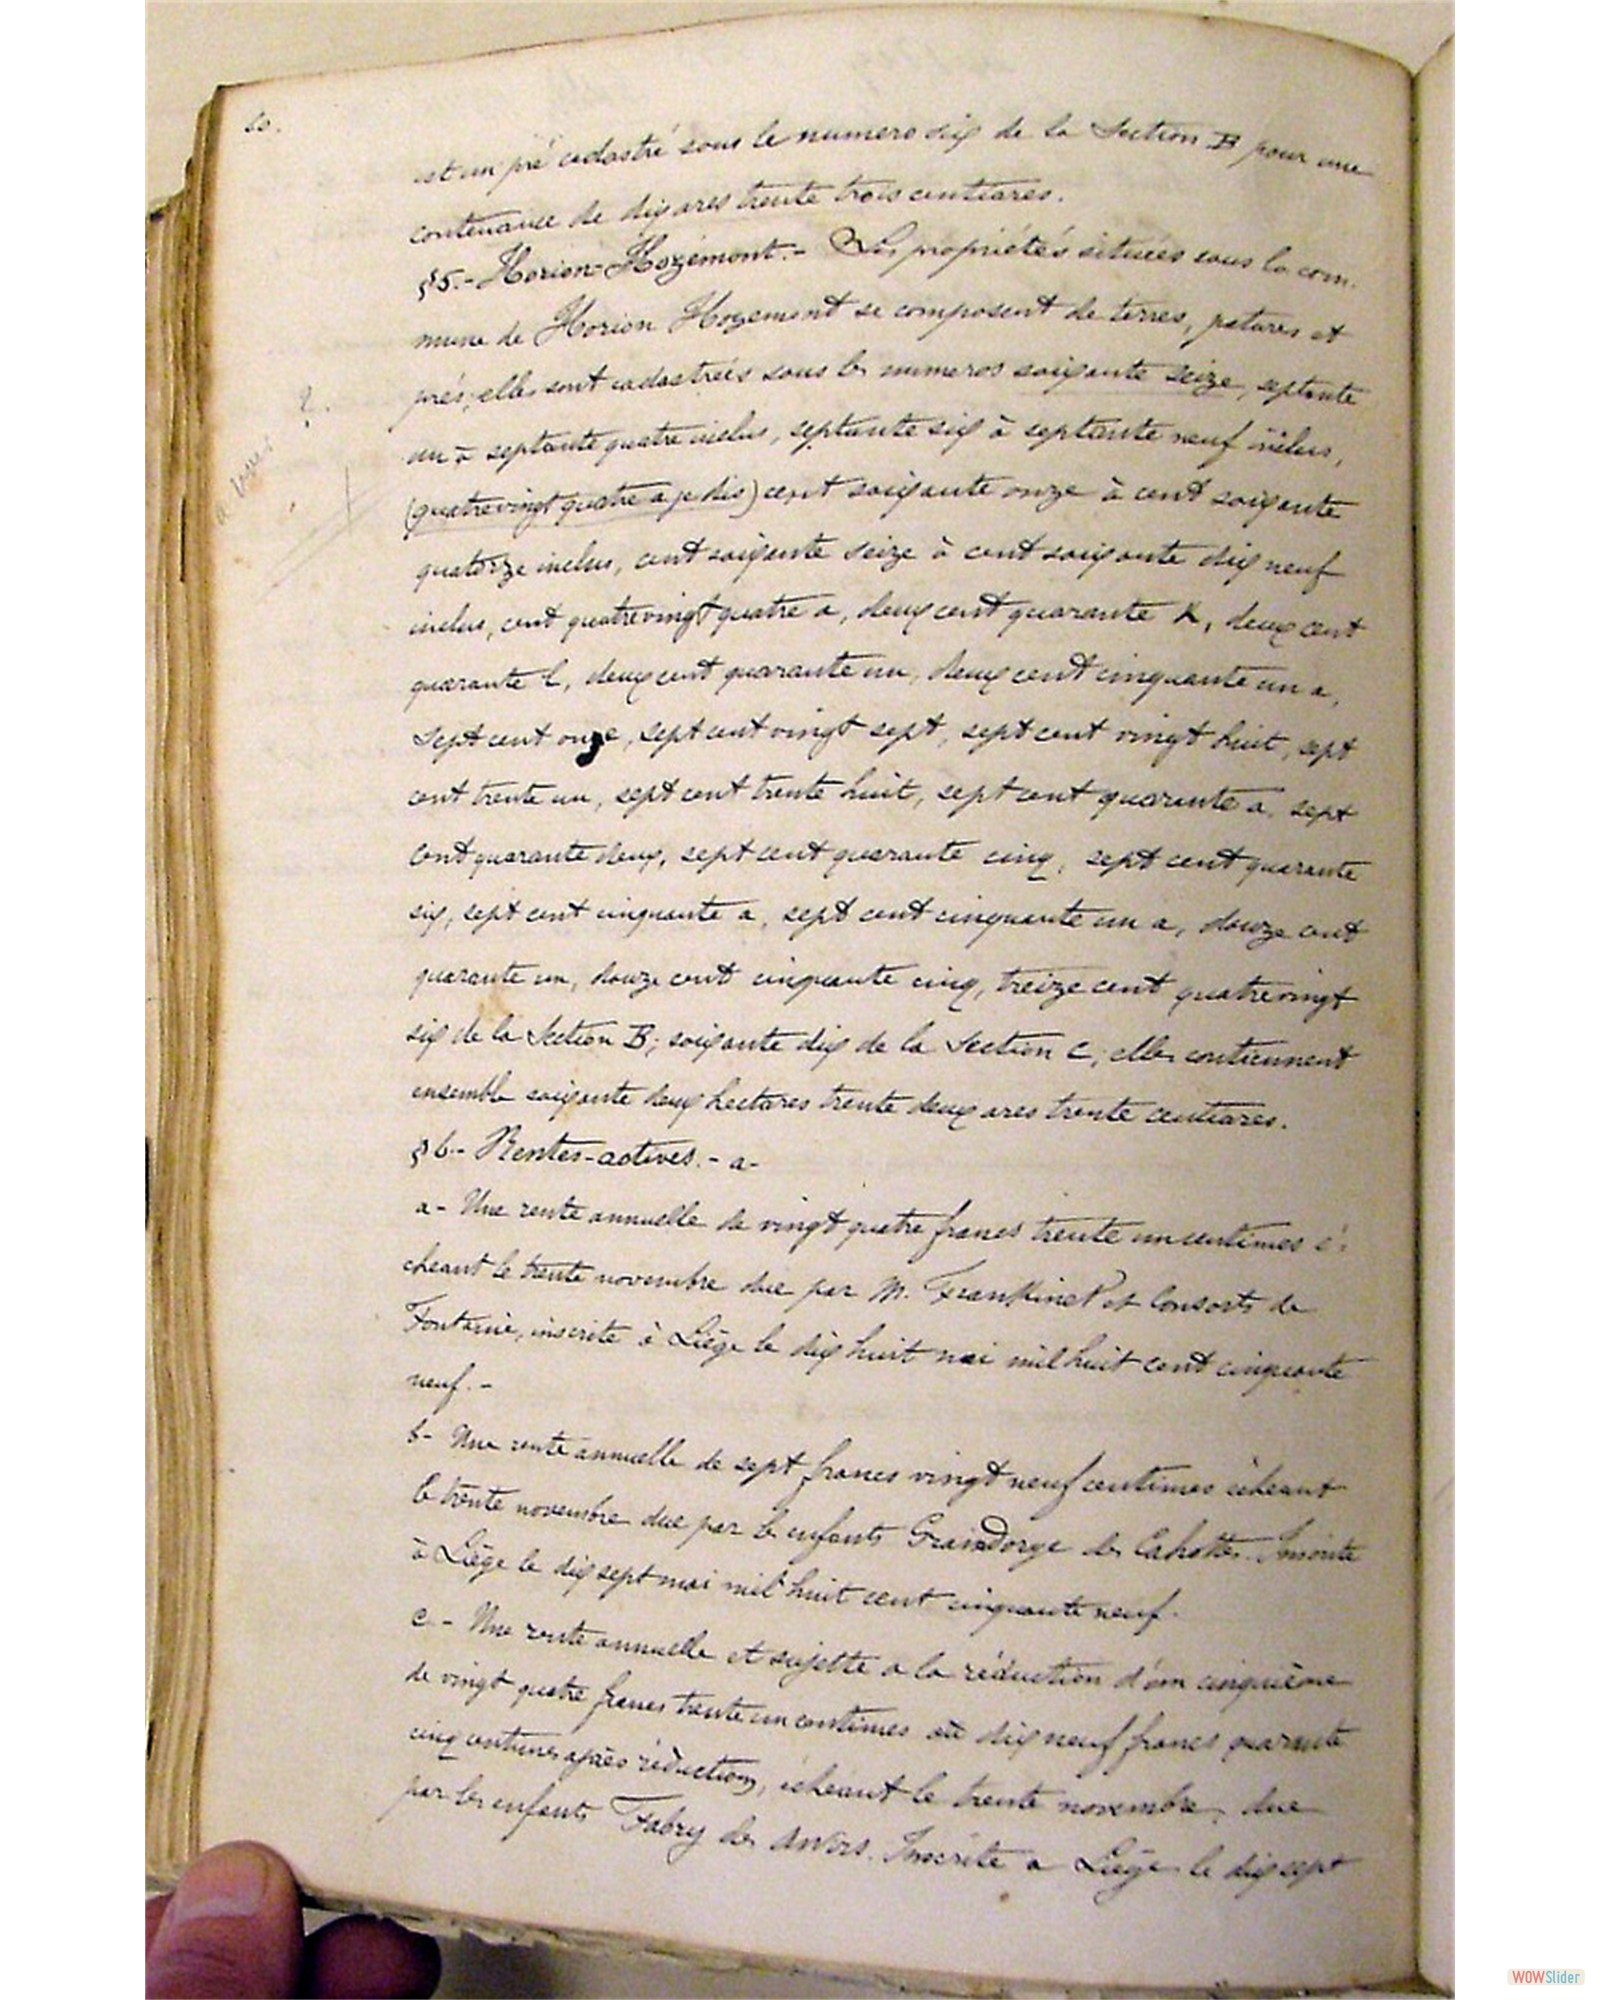 est un pré cadastré sous le numero dix de la Section B pour une
contenance de dix ares trente trois centiares.
§5.- Horion-Hozémont.- Les propriétés situées sous la com-
mune de Horion Hozemont se composent de terres, patures et
prés, elles sont cadastrées sous les numeros soixante seize, septante
un à septante quatre inclus, septante six à septante neuf inclus,
(quatrevingt quatre a je dis) cent soixante onze à cent soixante
quatorze inclus, cent soixante seize à cent soixante dix neuf
inclus, cent quatrevingt quatre a, deux cent quarante K, deux cent
quarante l, deux cent quarante un, deux cent cinquante un a,
Sept cent onze, sept cent vingt sept, sept cent vingt huit, sept
cent trente un, sept cent trente huit, sept cent quarante a, sept
cent quarante deux, sept cent quarante cinq, sept cent quarante
six, sept cent cinquante a, sept cent cinquante un a, douze cent
quarante un, douze cent cinquante cinq, treize cent quatrevingt
six de la Section B; soixante dix de la Section C; elles contiennent
ensemble soixante deux hectares trente deux ares trente centiares.
§6.- Rentes-actives.- a-
a- Une rente annuelle de vingt quatre francs trente un centimes é-
cheant le trente novembre due par M. Frankinet et Consorts de
Fontaine, inscrite à Liège le dix huit mai mil huit cent cinquante
neuf.-
b- Une rente annuelle de sept francs vingt neuf centimes écheant
le trente novembre due par les enfants Graindorge des Cahottes. Inscrite
à Liège le dix sept mai mil huit cent cinquante neuf.
c- Une rente annuelle et sujette a la réduction d'un cinquième
de vingt quatre francs trente un centimes ou dix neuf francs quarante
cinq centimes après réduction, écheant le trente novembre, due
par les enfants Fabry des Awirs. Inscrite a Liège le dix sept